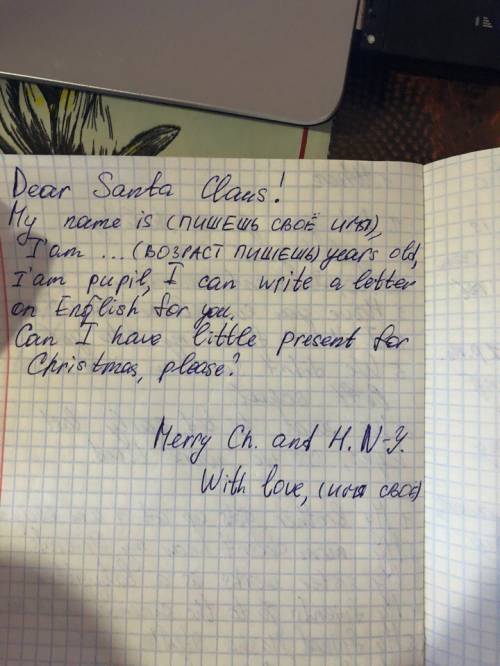 Dear Santa Claus!
My name is (ПИШЕШЬ СВОЁ ИМЯ),
I'am ... (ВОЗРАСТ ПИШЕШЬ) years old,
I'am pupil, I can write a letter
on English for you.
Can I have little present for
Christmas, please?
Merry Ch. and H. N-Y.
With love, (имя своё)